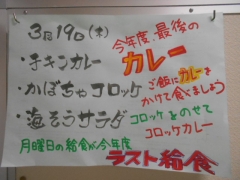 3月19日(木)
今年度 最後の
カレー
・チキンカレー
・かぼちゃコロッケ
・海そうサラダ
ご飯にカレーを
かけて食べましょう
コロッケをのせて
コロッケカレー
月曜日の給食が今年度
ラスト給食